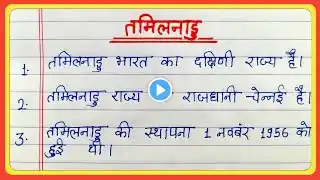 तमिलनाडु
1. तमिलनाडु भारत का दक्षिणी राज्य है।
2. तमिलनाडु राज्य राजधानी चेन्नई है।
3. तमिलनाडु की स्थापना 1 नवबंर 1956 को
हुई थी।